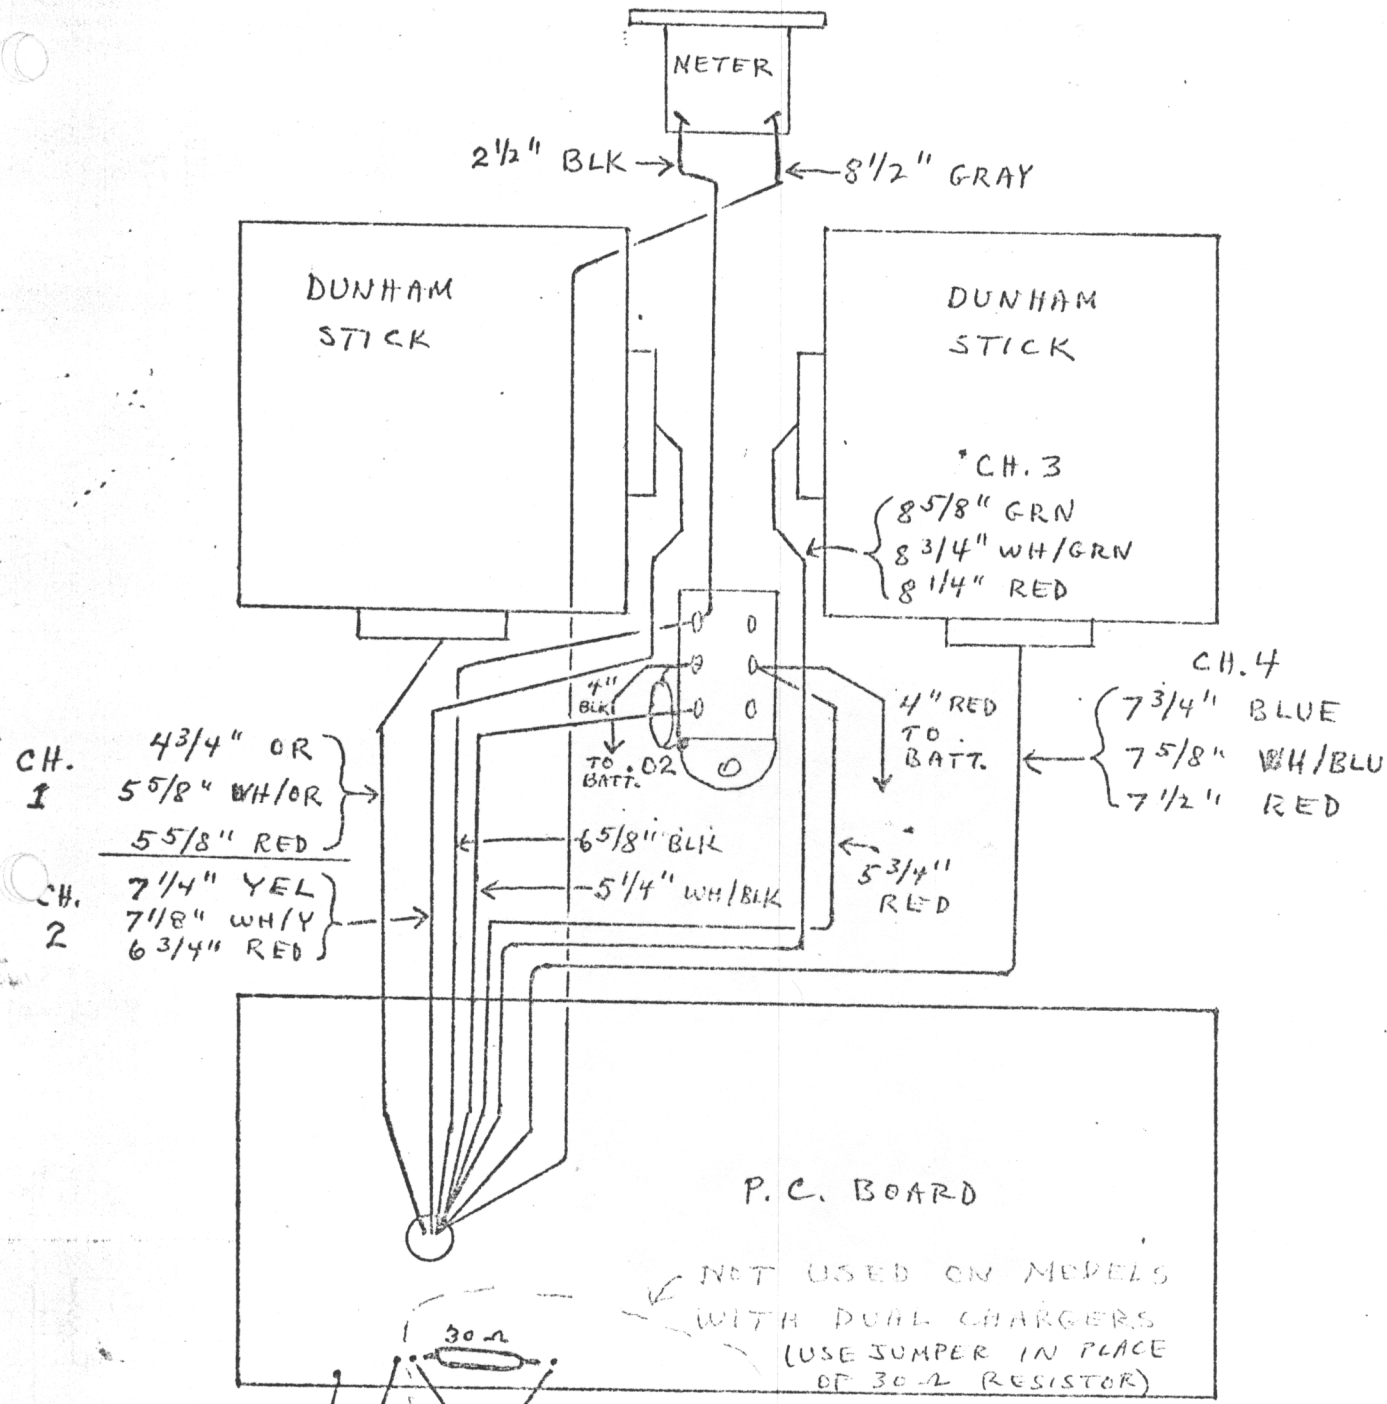 METER
2 1/2" BLK
8 1/2" GRAY
DUNHAM
STICK
DUNHAM
STICK
CH. 3
8 5/8" GRN
8 3/4" WH/GRN
8 1/4" RED
CH. 4
7 3/4" BLUE
7 5/8" WH/BLU
7 1/2" RED
4"
BLK
TO
BATT.
.02
4" RED
TO
BATT.
CH.
1
4 3/4" OR
5 5/8" WH/OR
5 5/8" RED
CH.
2
7 1/4" YEL
7 1/8" WH/Y
6 3/4" RED
6 5/8" BLK
5 1/4" WH/BLK
5 3/4"
RED
P. C. BOARD
NOT USED ON MODELS
WITH DUAL CHARGERS
(USE JUMPER IN PLACE
OF 30 Ω RESISTOR)
30 Ω